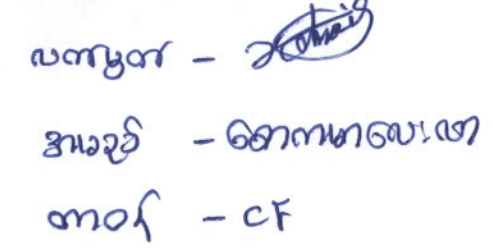 လက်မှတ် -
အမည် - စောကမာလေးထာ
တာဝန် - CF